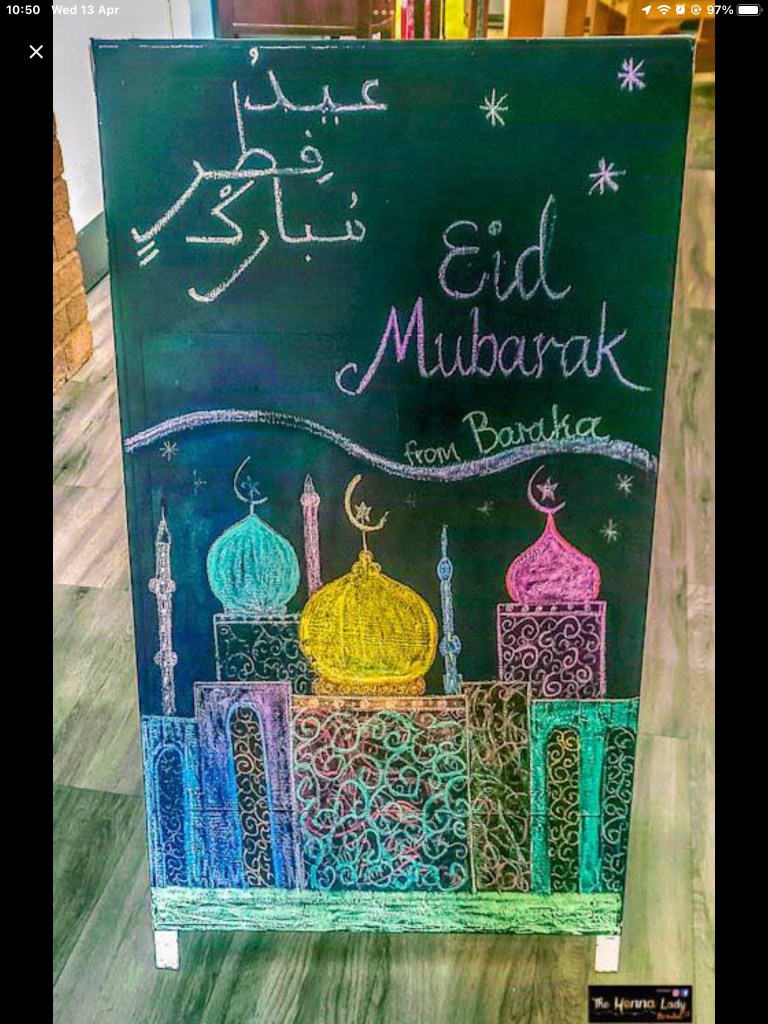 10:50 Wed 13 Apr 97%
عيدُ
فِطرٍ
مُباركْ
Eid
Mubarak
from Baraka
The Henna Lady